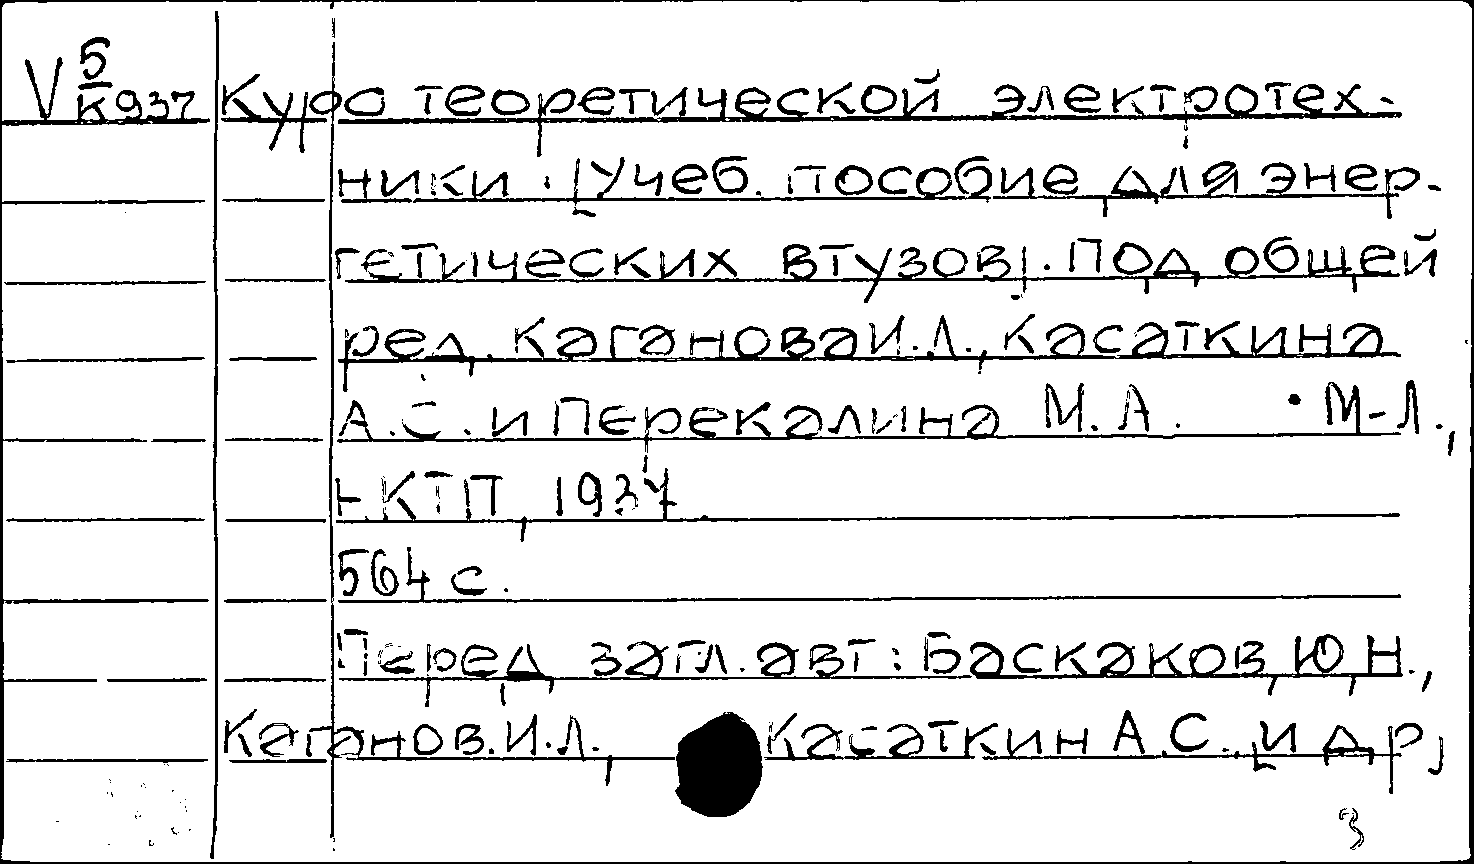 V 5/К937 Курс теоретической электротех-
ники. [Учеб. пособие для энер-
гетических втузов]. Под общей
ред. Каганова И.Л., Касаткина
А.С. и Перекалина М.А. • М-Л.,
НКТП, 1937.
564 с.
Перед загл. авт: Баскаков, Ю.Н.,
Каганов. И.Л., Касаткин А.С. [и др]
3